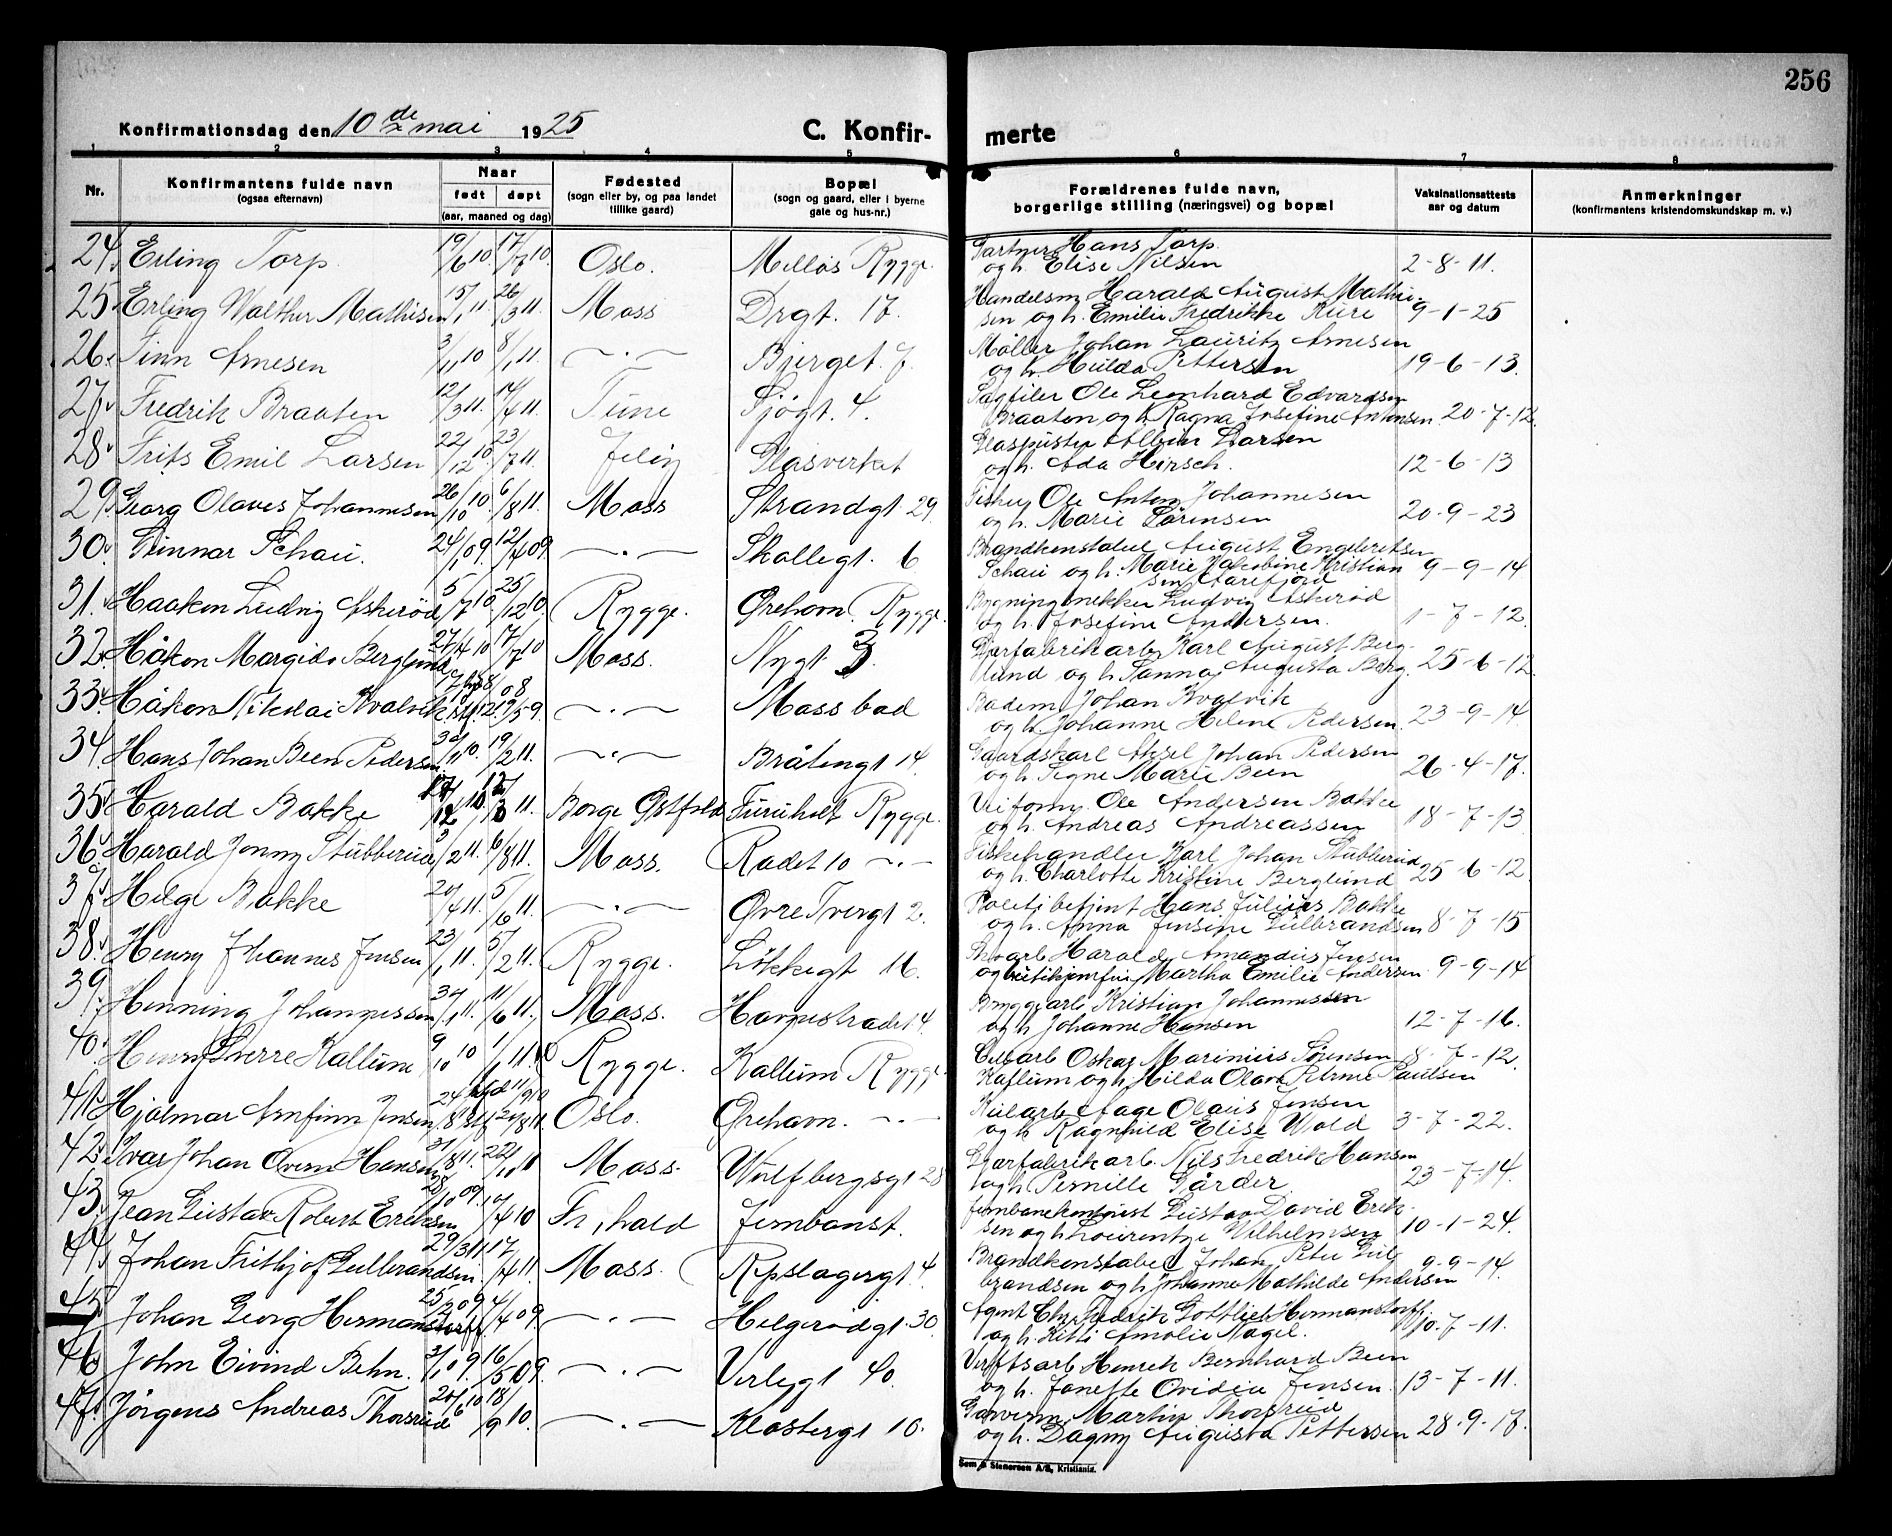 256
Konfirmationsdag den 10de mai 1925
C. Konfir- merte
1 2 3 4 5 6 7 8
Nr. Konfirmantens fulde navn (ogsaa efternavn) Naar født døpt (aar, maaned og dag) Fødested (sogn eller by, og paa landet tillike gaard) Bopæl (sogn og gaard, eller i byerne gate og hus-nr.) Forældrenes fulde navn, borgerlige stilling (næringsvei) og bopæl Vaksinationsattests aar og datum Anmerkninger (konfirmantens kristendomskundskap m. v.)
24. Erling Torp 19/6 10. 17/7 10. Oslo. Melløs Rygge. Gartner Hans Torp
og h. Elise Nilsen 2-8-11.
25. Erling Walther Mathisen 15/1 11 26/3 11. Moss Drgt. 17. Handelsm Harald August Mathi-
sen og h. Emilie Fredrikke Kure 9-1-25
26. Finn Arnesen 3/11 10 8/1 11. —.— Bjerget 7. Møller Johan Lauritz Arnesen
og h. Hulda Pettersen 19-6-13.
27. Fredrik Braaten 12/3 11. 17/4 11. Tune Sjøgt. 4. Sagfiler Ole Leonhard Edvardsen
Braaten og h. Ragna Josefine Antonsen 20-7-12.
28. Frits Emil Larsen 22/12 10. 23/7 11. Jeløy Glasverket Glaspuster Albin Larsen
og h. Ada Hirsch. 12-6-13
29. Georg Olaves Johannesen 26/10 10 6/8 11. Moss Strandgt 29. Fisker Ole Anton Johannesen
og h. Marie Sørensen 20-9-23
30. Gunnar Schau. 24/1 09. 12/4 09. —.— Skollegt. 6 Brandkonstabel August Engebretsen
Schau og h. Marie Jakobine Kristian
sen Aarefjord 9-9-14
31. Haakon Ludvig Askerød 5/7 10. 25/12 10. Rygge. Ørehavn. Rygge. Bygningssnekker Ludvig Askerød
og h. Josefine Andersen. 1-7-12.
32. Håkon Margido Berglund 27/4 10 17/7 10 Moss. Nygt. 3. Lærfabrikarb Karl August Berg-
lund og h. Sanna Augusta Berg. 25-6-12.
33. Håkon Nikolai Kvalvik —.— Moss bad Badem. Johan Kvalvik
og h. Johanne Helene Pedersen. 23-9-14.
34. Hans Johan Been Pedersen 30/11 10. 19/2 11. —.— Bråtengt 14. Gaardskarl Aksel Johan Pedersen
og h. Signe Marie Been 26-4-17.
35. Harald Bakke Borge Østfold Furuholt Rygge. Veiform. Ole Andersen Bakke
og h. Andreas Andreassen 18-7-13
36. Harald Jonny Stubberud 3/2 11. 6/8 11. Moss. Rådet 10 —.— Fiskehandler Karl Johan Stubberud
og h. Charlotte Kristine Berglund 25-6-12.
37. Helge Bakke 20/4 11. 5/6 11. —.— Øvre Tvergt 2. Politibetjent Hans Julius Bakke
og h. Anna Jensine Gulbrandsen 8-7-15
38. Henry Johannes Jensen 23/1 11. 5/2 11. Rygge. Løkkegt 16. Harald Amandus Jensen
og Martha Emilie Andersen 9-9-14
39. Henning Johannessen 30/1 11. 11/6 11. Moss. Henrichstrædet 4. Bryggearb Kristian Johannessen
og h. Johanne Hansen 12-7-16.
40. Henry Sverre Kallum 9/10 10 1/1 11. Rygge. Kallum Rygge. Cellarb Oskar Marinius Sørensen
Kallum og h. Hilda Olava Petrine Paulsen 8-7-12.
41. Hjalmar Arnfinn Jensen Oslo. Ørehavn. —.— Kularb. Aage Olaus Jensen
og h. Ragnhild Elise Wold 3-7-22.
42. Ivar Johan Overn Hansen 31/8 11. 22/10 11 Moss. Wulfbergsgt 28 Lærfabrikarb. Nils Fredrik Hansen
og h. Pernille Gårder 23-7-14.
43. Jean Gustav Robert Eriksen 28/10 09. 17/4 10 Fr,hald Jernbanest. Jernbanekontorist Gustav David Erik-
sen og h. Laurentze Wilhelmsen 10-1-24.
44. Johan Frithjof Gulbrandsen 29/3 11 17/4 11 Moss. Repslagergt 4. Brandkonstabel Johan Peter Gul-
brandsen og h. Johanne Mathilde Andersen 9-9-14.
45. Johan Georg Hermanstorff 25/2 09. 4/4 09. —.— Helgerødgt. 30. Agent Chr. Fredrik Gottlieb Hermanstorff
og h. Kitti Amalie Nagel. 10-7-11.
46. John Eivind Behn. 3/1 09. 16/5 09. —.— Verlegt 40. Verftsarb Henrik Bernhard Been
og h. Janette Ovidia Jensen. 13-7-11.
47. Jørgens Andreas Thorsrud 20/6 10 18/9 10. —.— Klostergt 10. Garverm. Martin Thorsrud
og h. Dagny Augusta Pettersen 28-9-17.
Sem & Stenersen A/S, Kristiania.